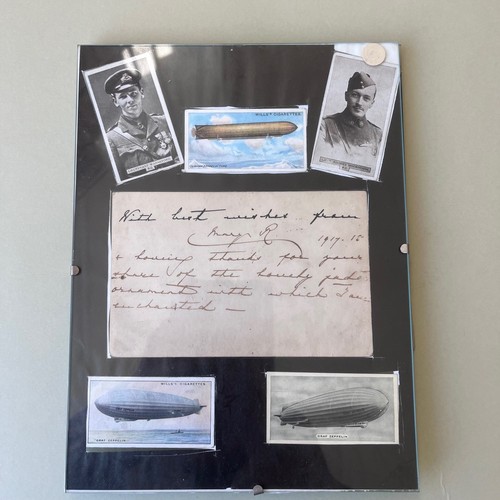 WILLS'S CIGARETTES
With best wishes from
Mary R
1917-18
& loving thanks for your
share of the lovely jade
ornament with which I am
enchanted —
WILLS'S CIGARETTES
"GRAF ZEPPELIN"
GRAF ZEPPELIN